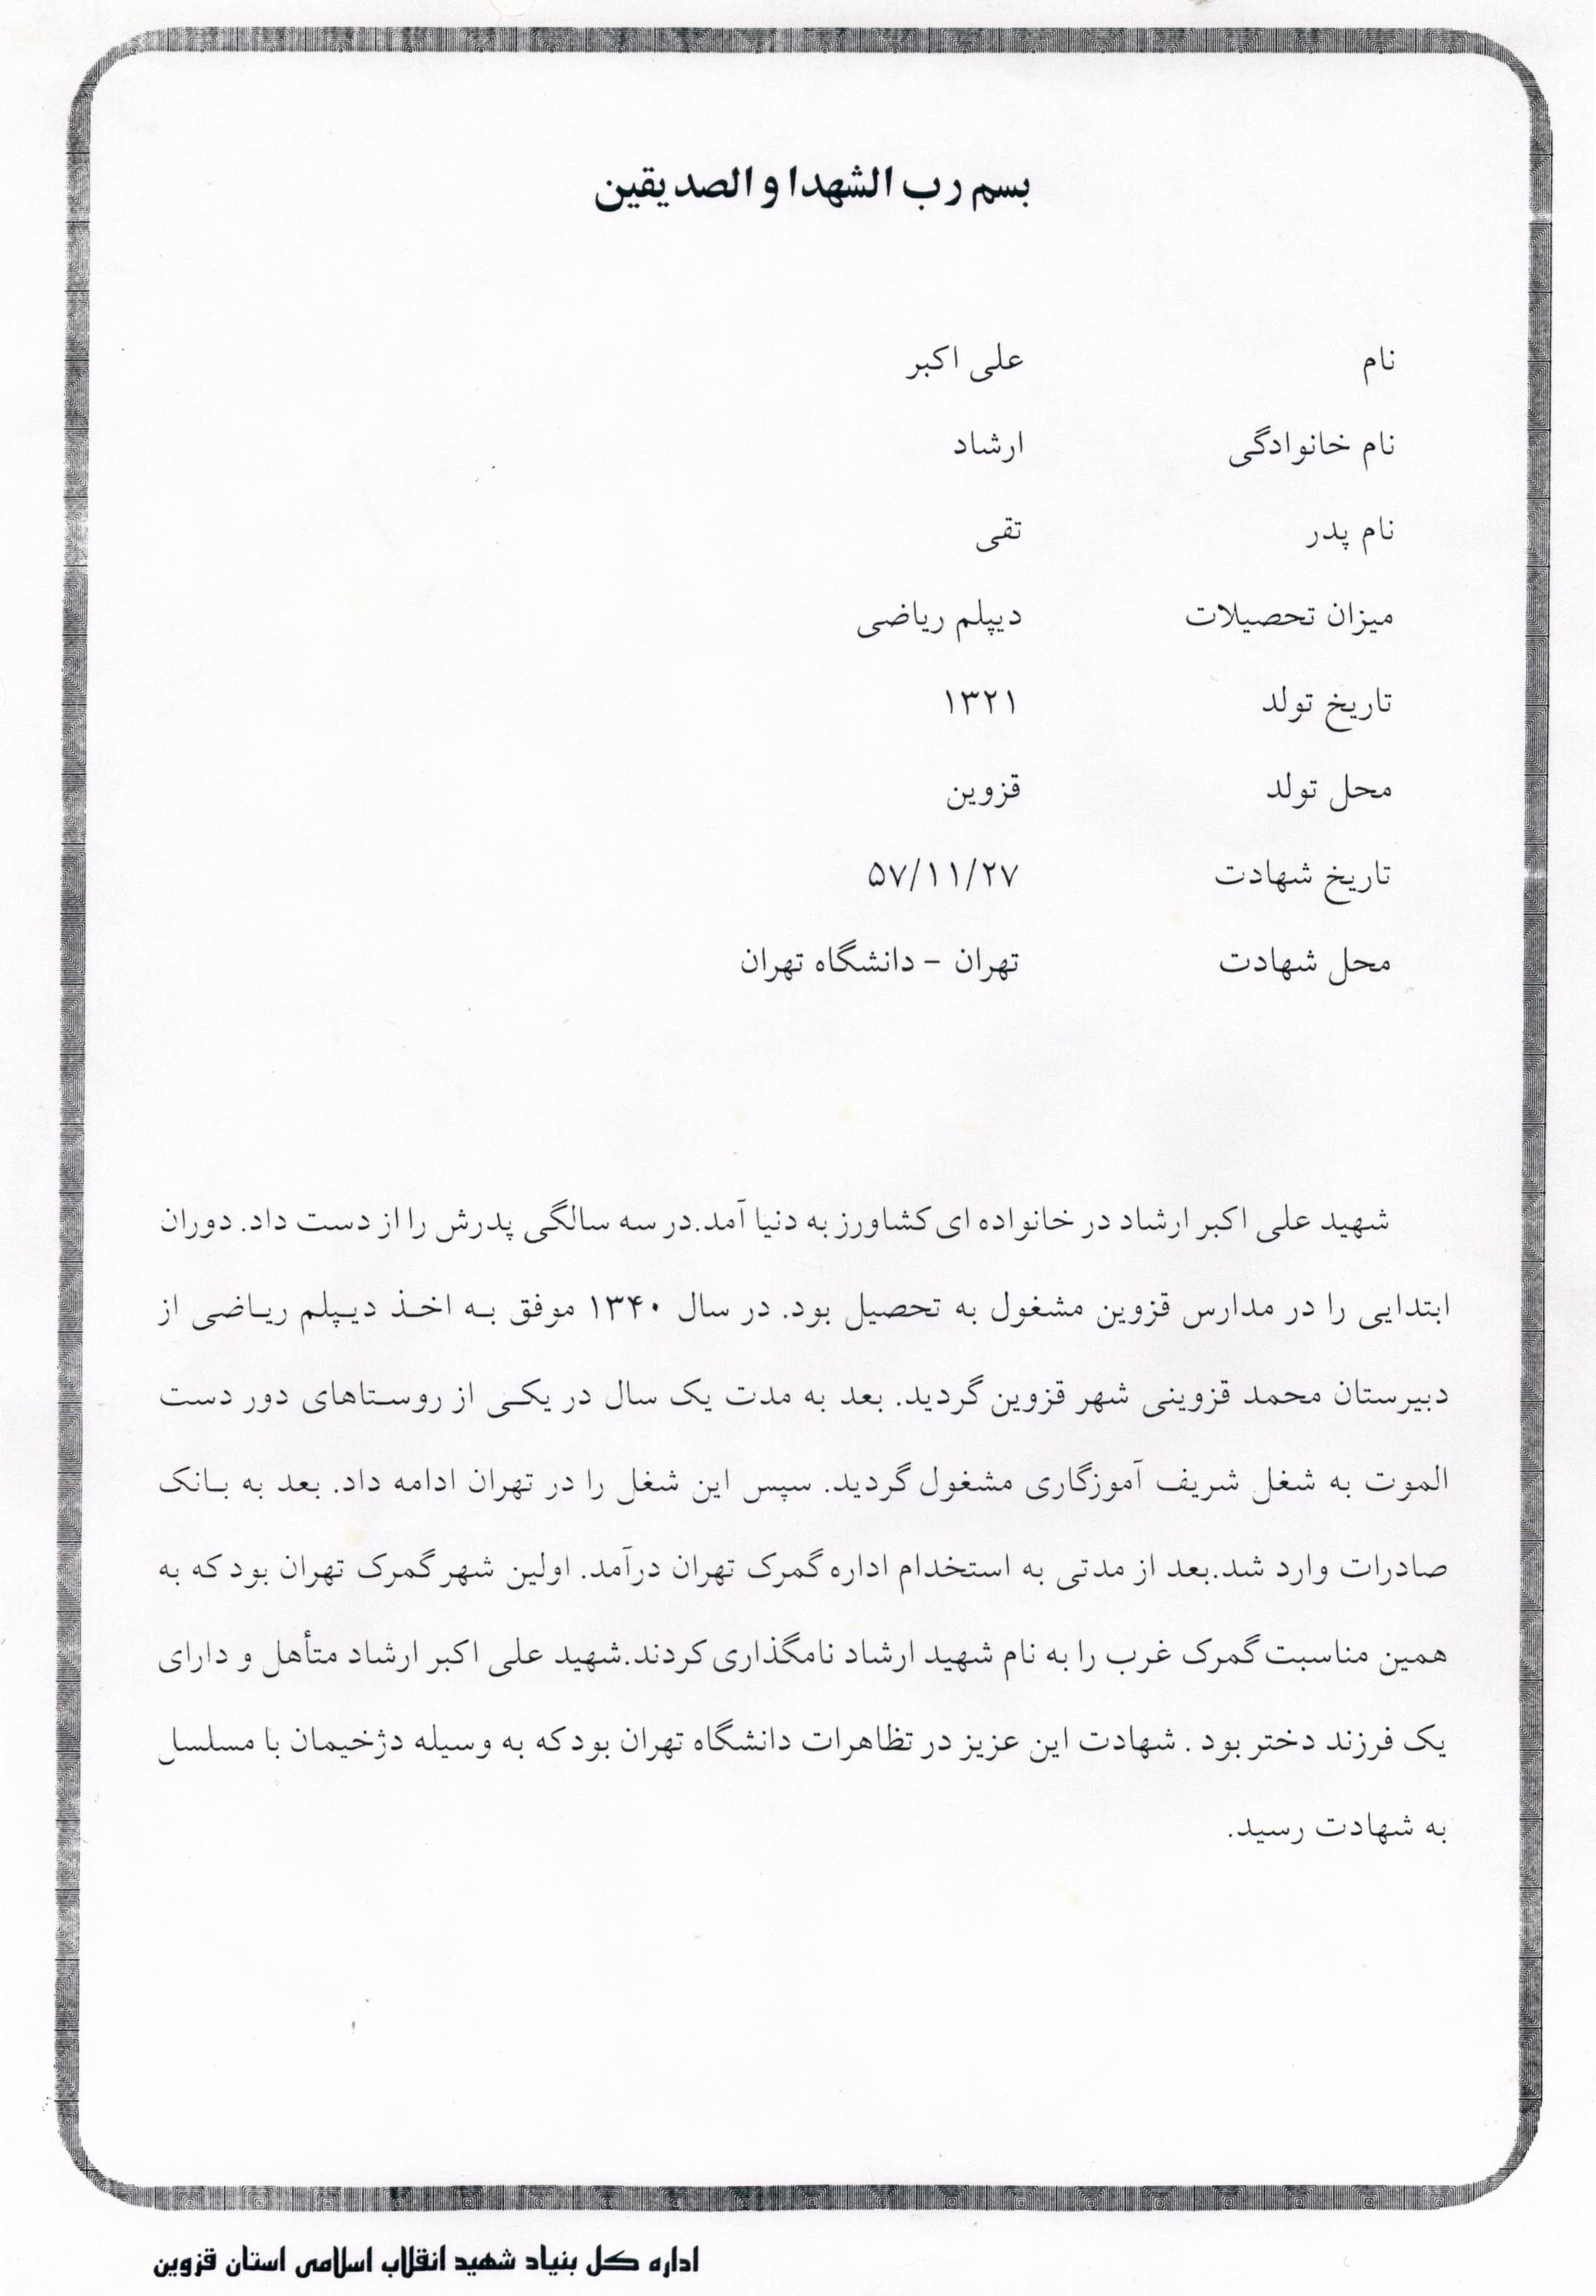 بسم رب الشهدا و الصدیقین
نام علی اکبر
نام خانوادگی ارشاد
نام پدر تقی
میزان تحصیلات دیپلم ریاضی
تاریخ تولد ۱۳۲۱
محل تولد قزوین
تاریخ شهادت ۵۷/۱۱/۲۷
محل شهادت تهران - دانشگاه تهران
شهید علی اکبر ارشاد در خانواده ای کشاورز به دنیا آمد.در سه سالگی پدرش را از دست داد. دوران
ابتدایی را در مدارس قزوین مشغول به تحصیل بود. در سال ۱۳۴۰ موفق به اخذ دیپلم ریاضی از
دبیرستان محمد قزوینی شهر قزوین گردید. بعد به مدت یک سال در یکی از روستاهای دور دست
الموت به شغل شریف آموزگاری مشغول گردید. سپس این شغل را در تهران ادامه داد. بعد به بانک
صادرات وارد شد.بعد از مدتی به استخدام اداره گمرک تهران درآمد. اولین شهر گمرک تهران بود که به
همین مناسبت گمرک غرب را به نام شهید ارشاد نامگذاری کردند.شهید علی اکبر ارشاد متأهل و دارای
یک فرزند دختر بود . شهادت این عزیز در تظاهرات دانشگاه تهران بود که به وسیله دژخیمان با مسلسل
به شهادت رسید.
اداره کل بنیاد شهید انقلاب اسلامی استان قزوین